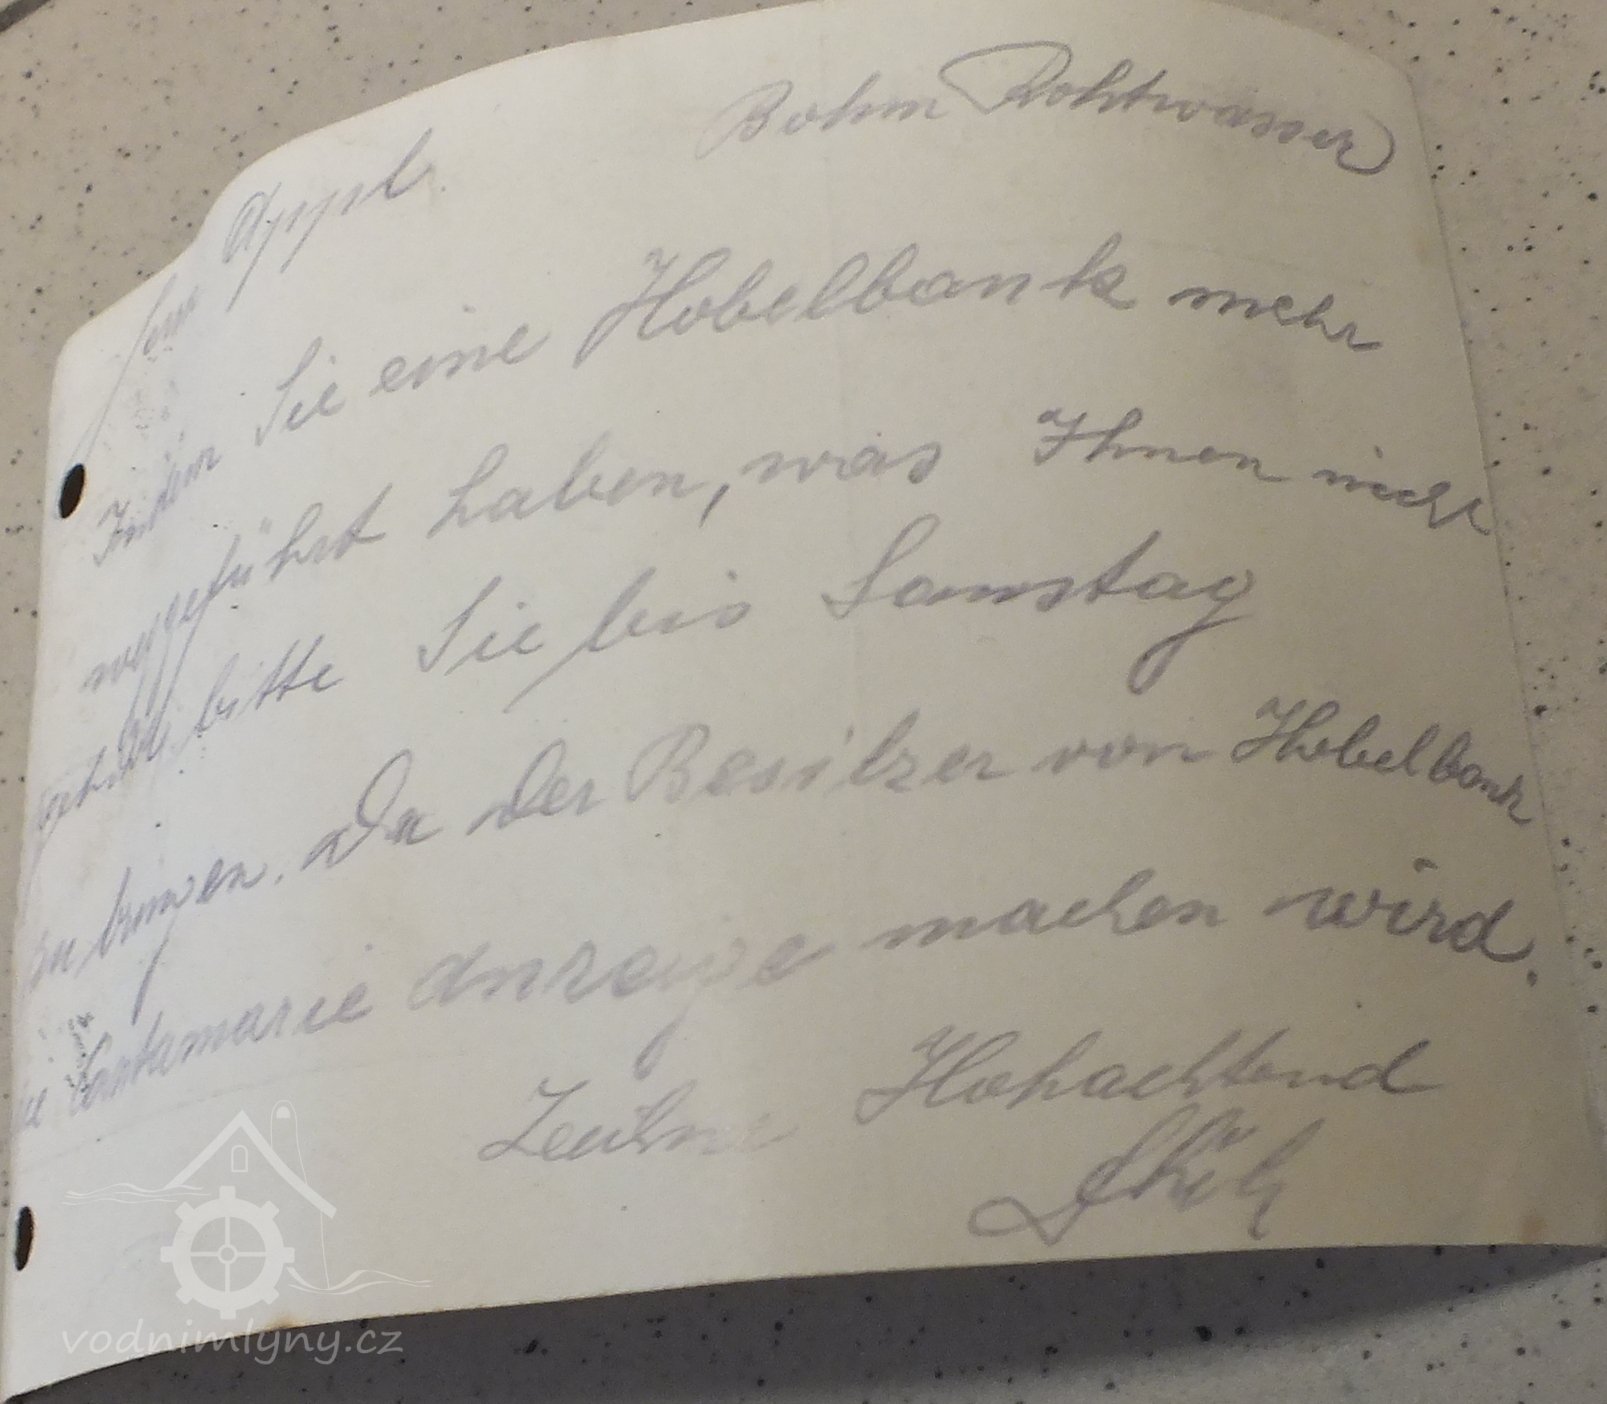 Bohm Rohtwasser
Appl.
Indem Sie eine Hobelbank mehr
weggeführt haben, was Ihnen nicht
gehört bitte Sie bis Samstag
zu bringen. Da der Besitzer von Hobelbank
Anzeige machen wird.
Hohachtend
vodnimlyny.cz